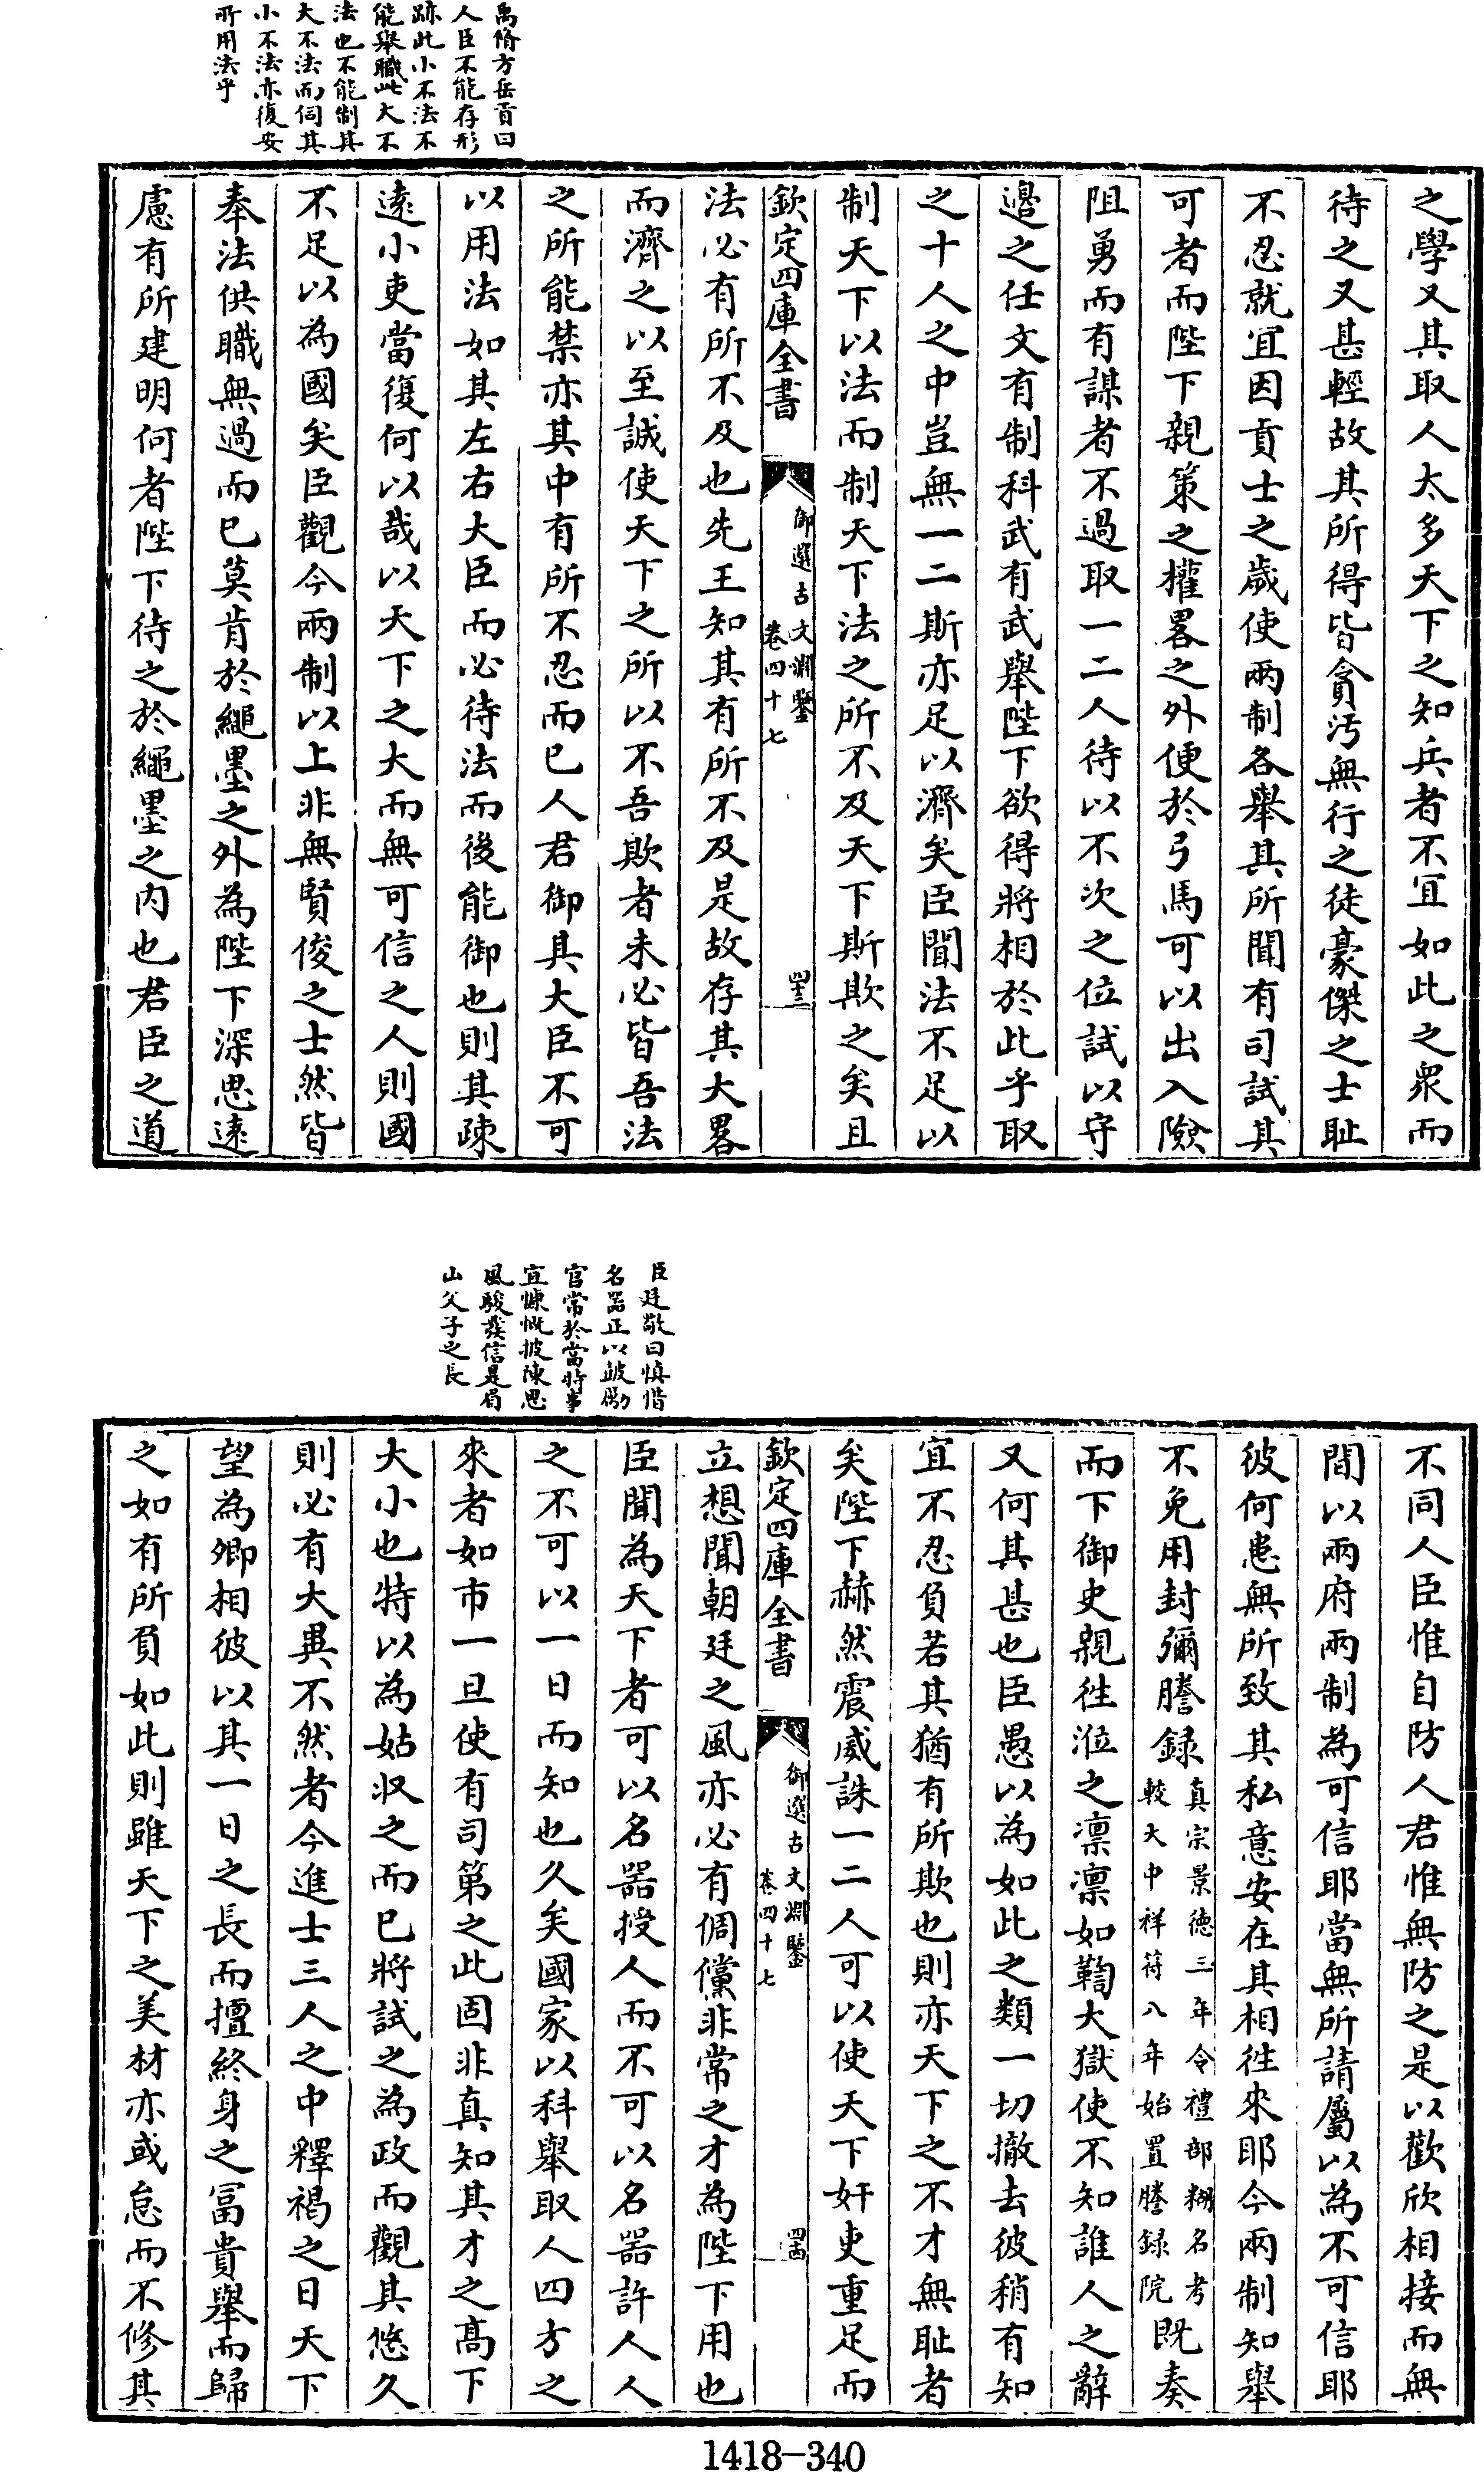 禹脩方岳貢曰
人臣不能存形
跡此小不法不
能舉職此大不
法也不能制其
大不法而伺其
小不法亦復安
所用法乎
之學又其取人太多天下之知兵者不宜如此之衆而
待之又甚輕故其所得皆貪汚無行之徒豪傑之士耻
不忍就宜因貢士之歲使兩制各舉其所聞有司試其
可者而陛下親策之權畧之外便於弓馬可以出入險
阻勇而有謀者不過取一二人待以不次之位試以守
邊之任文有制科武有武舉陛下欲得將相於此乎取
之十人之中豈無一二斯亦足以濟矣臣聞法不足以
制天下以法而制天下法之所不及天下斯欺之矣且
欽定四庫全書
御選古文淵鑒
卷四十七
四三
法必有所不及也先王知其有所不及是故存其大畧
而濟之以至誠使天下之所以不吾欺者未必皆吾法
之所能禁亦其中有所不忍而已人君御其大臣不可
以用法如其左右大臣而必待法而後能御也則其疎
遠小吏當復何以哉以天下之大而無可信之人則國
不足以為國矣臣觀今兩制以上非無賢俊之士然皆
奉法供職無過而已莫肯於繩墨之外為陛下深思遠
慮有所建明何者陛下待之於繩墨之内也君臣之道
臣廷敬曰慎惜
名器正以鼓勵
官常於當時事
宜慷慨披陳思
風駿發信是眉
山父子之長
不同人臣惟自防人君惟無防之是以歡欣相接而無
間以兩府兩制為可信耶當無所請屬以為不可信耶
彼何患無所致其私意安在其相徃來耶今兩制知舉
不免用封彌謄録真宗景徳三年令禮部糊名考較大中祥符八年始置謄録院既奏
而下御史親徃涖之凛凛如鞫大獄使不知誰人之辭
又何其甚也臣愚以為如此之類一切撤去彼稍有知
宜不忍負若其猶有所欺也則亦天下之不才無耻者
矣陛下赫然震威誅一二人可以使天下奸吏重足而
欽定四庫全書
御選古文淵鑒
卷四十七
四四
立想聞朝廷之風亦必有倜儻非常之才為陛下用也
臣聞為天下者可以名器授人而不可以名器許人人
之不可以一日而知也久矣國家以科舉取人四方之
來者如市一旦使有司第之此固非真知其才之高下
大小也特以為姑収之而已將試之為政而觀其悠久
則必有大異不然者今進士三人之中釋褐之日天下
望為卿相彼以其一日之長而擅終身之冨貴舉而歸
之如有所負如此則雖天下之美材亦或怠而不修其
1418-340